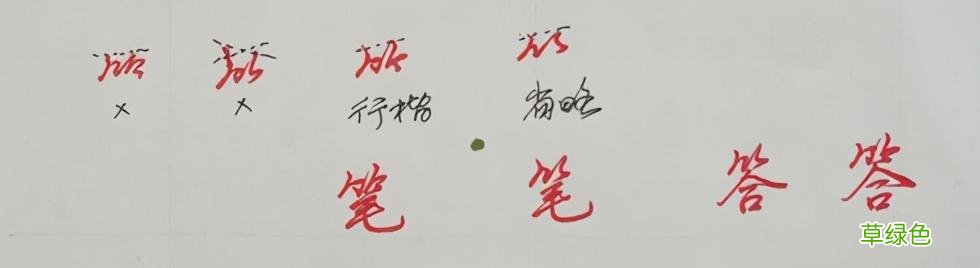 × × 行楷 省略
笔 笔 答 答
草绿色